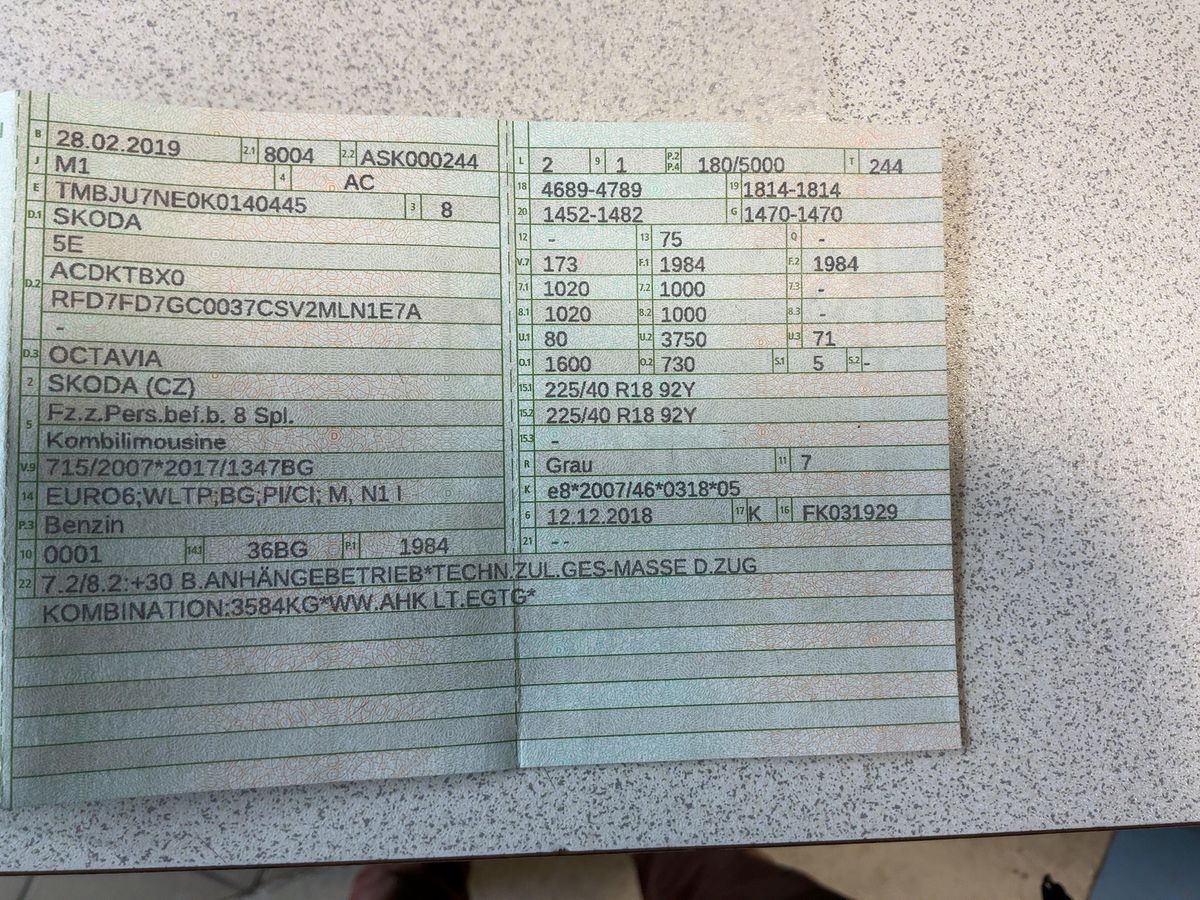 B 28.02.2019 2.1 8004 2.2 ASK000244
J M1 4 AC
E TMBJU7NE0K0140445 3 8
D.1 SKODA
5E
D.2 ACDKTBX0
RFD7FD7GC0037CSV2MLN1E7A
-
D.3 OCTAVIA
2 SKODA (CZ)
5 Fz.z.Pers.bef.b. 8 Spl.
Kombilimousine
V.9 715/2007*2017/1347BG
14 EURO6;WLTP;BG;PI/CI; M, N1 I
P.3 Benzin
10 0001 14.1 36BG P.1 1984
L 2 9 1 P.2 P.4 180/5000 T 244
18 4689-4789 19 1814-1814
20 1452-1482 G 1470-1470
12 - 13 75 Q -
V.7 173 F.1 1984 F.2 1984
7.1 1020 7.2 1000 7.3 -
8.1 1020 8.2 1000 8.3 -
U.1 80 U.2 3750 U.3 71
O.1 1600 O.2 730 S.1 5 S.2 -
15.1 225/40 R18 92Y
15.2 225/40 R18 92Y
15.3 -
R Grau 11 7
K e8*2007/46*0318*05
6 12.12.2018 17 K 16 FK031929
21 --
22 7.2/8.2:+30 B.ANHÄNGEBETRIEB*TECHN.ZUL.GES-MASSE D.ZUG
KOMBINATION:3584KG*WW.AHK LT.EGTG*